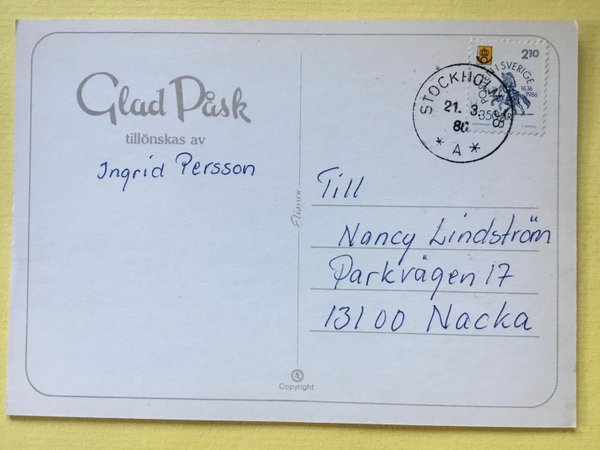 Glad Påsk
tillönskas av
Ingrid Persson
Elianus
Copyright
2.10
I SVERIGE
1636
1986
STOCKHOLM
21. 3.
86
* A *
Till
Nancy Lindström
Parkvägen 17
131 00 Nacka